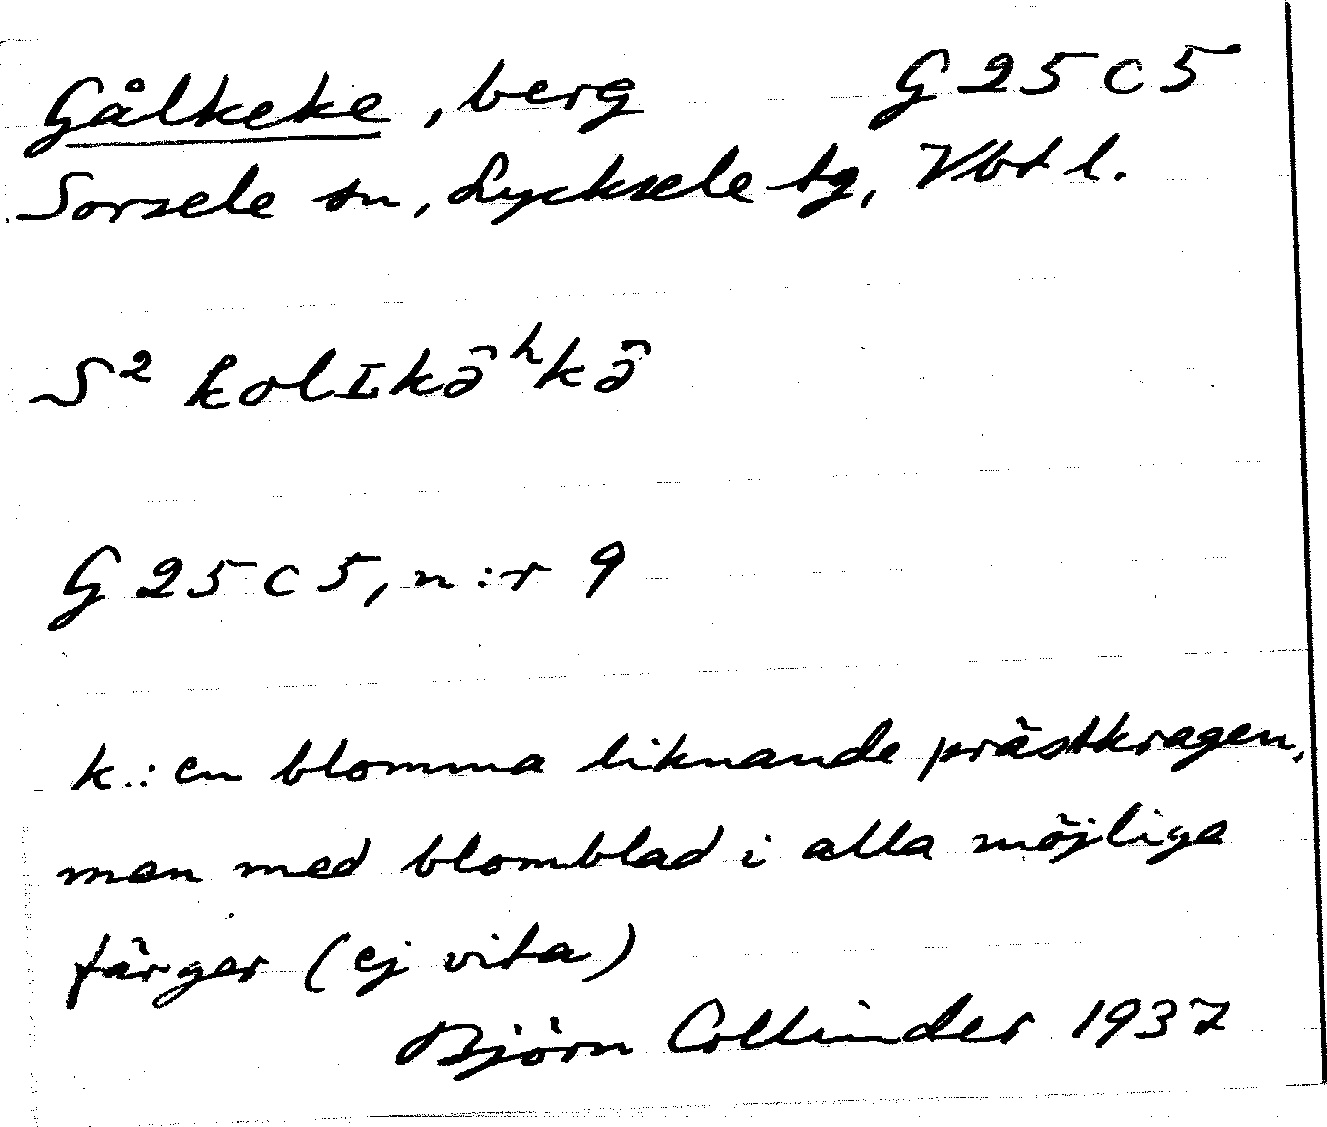 Gålkeke, berg G 25 C 5
Sorsele sn, Lycksele tg, Vbt l.
S² kolɪkə̂ʰkə̂
G 25 C 5, n:r 9
k.: en blomma liknande prästkragen,
men med blomblad i alla möjliga
färger (ej vita)
Björn Collinder 1937